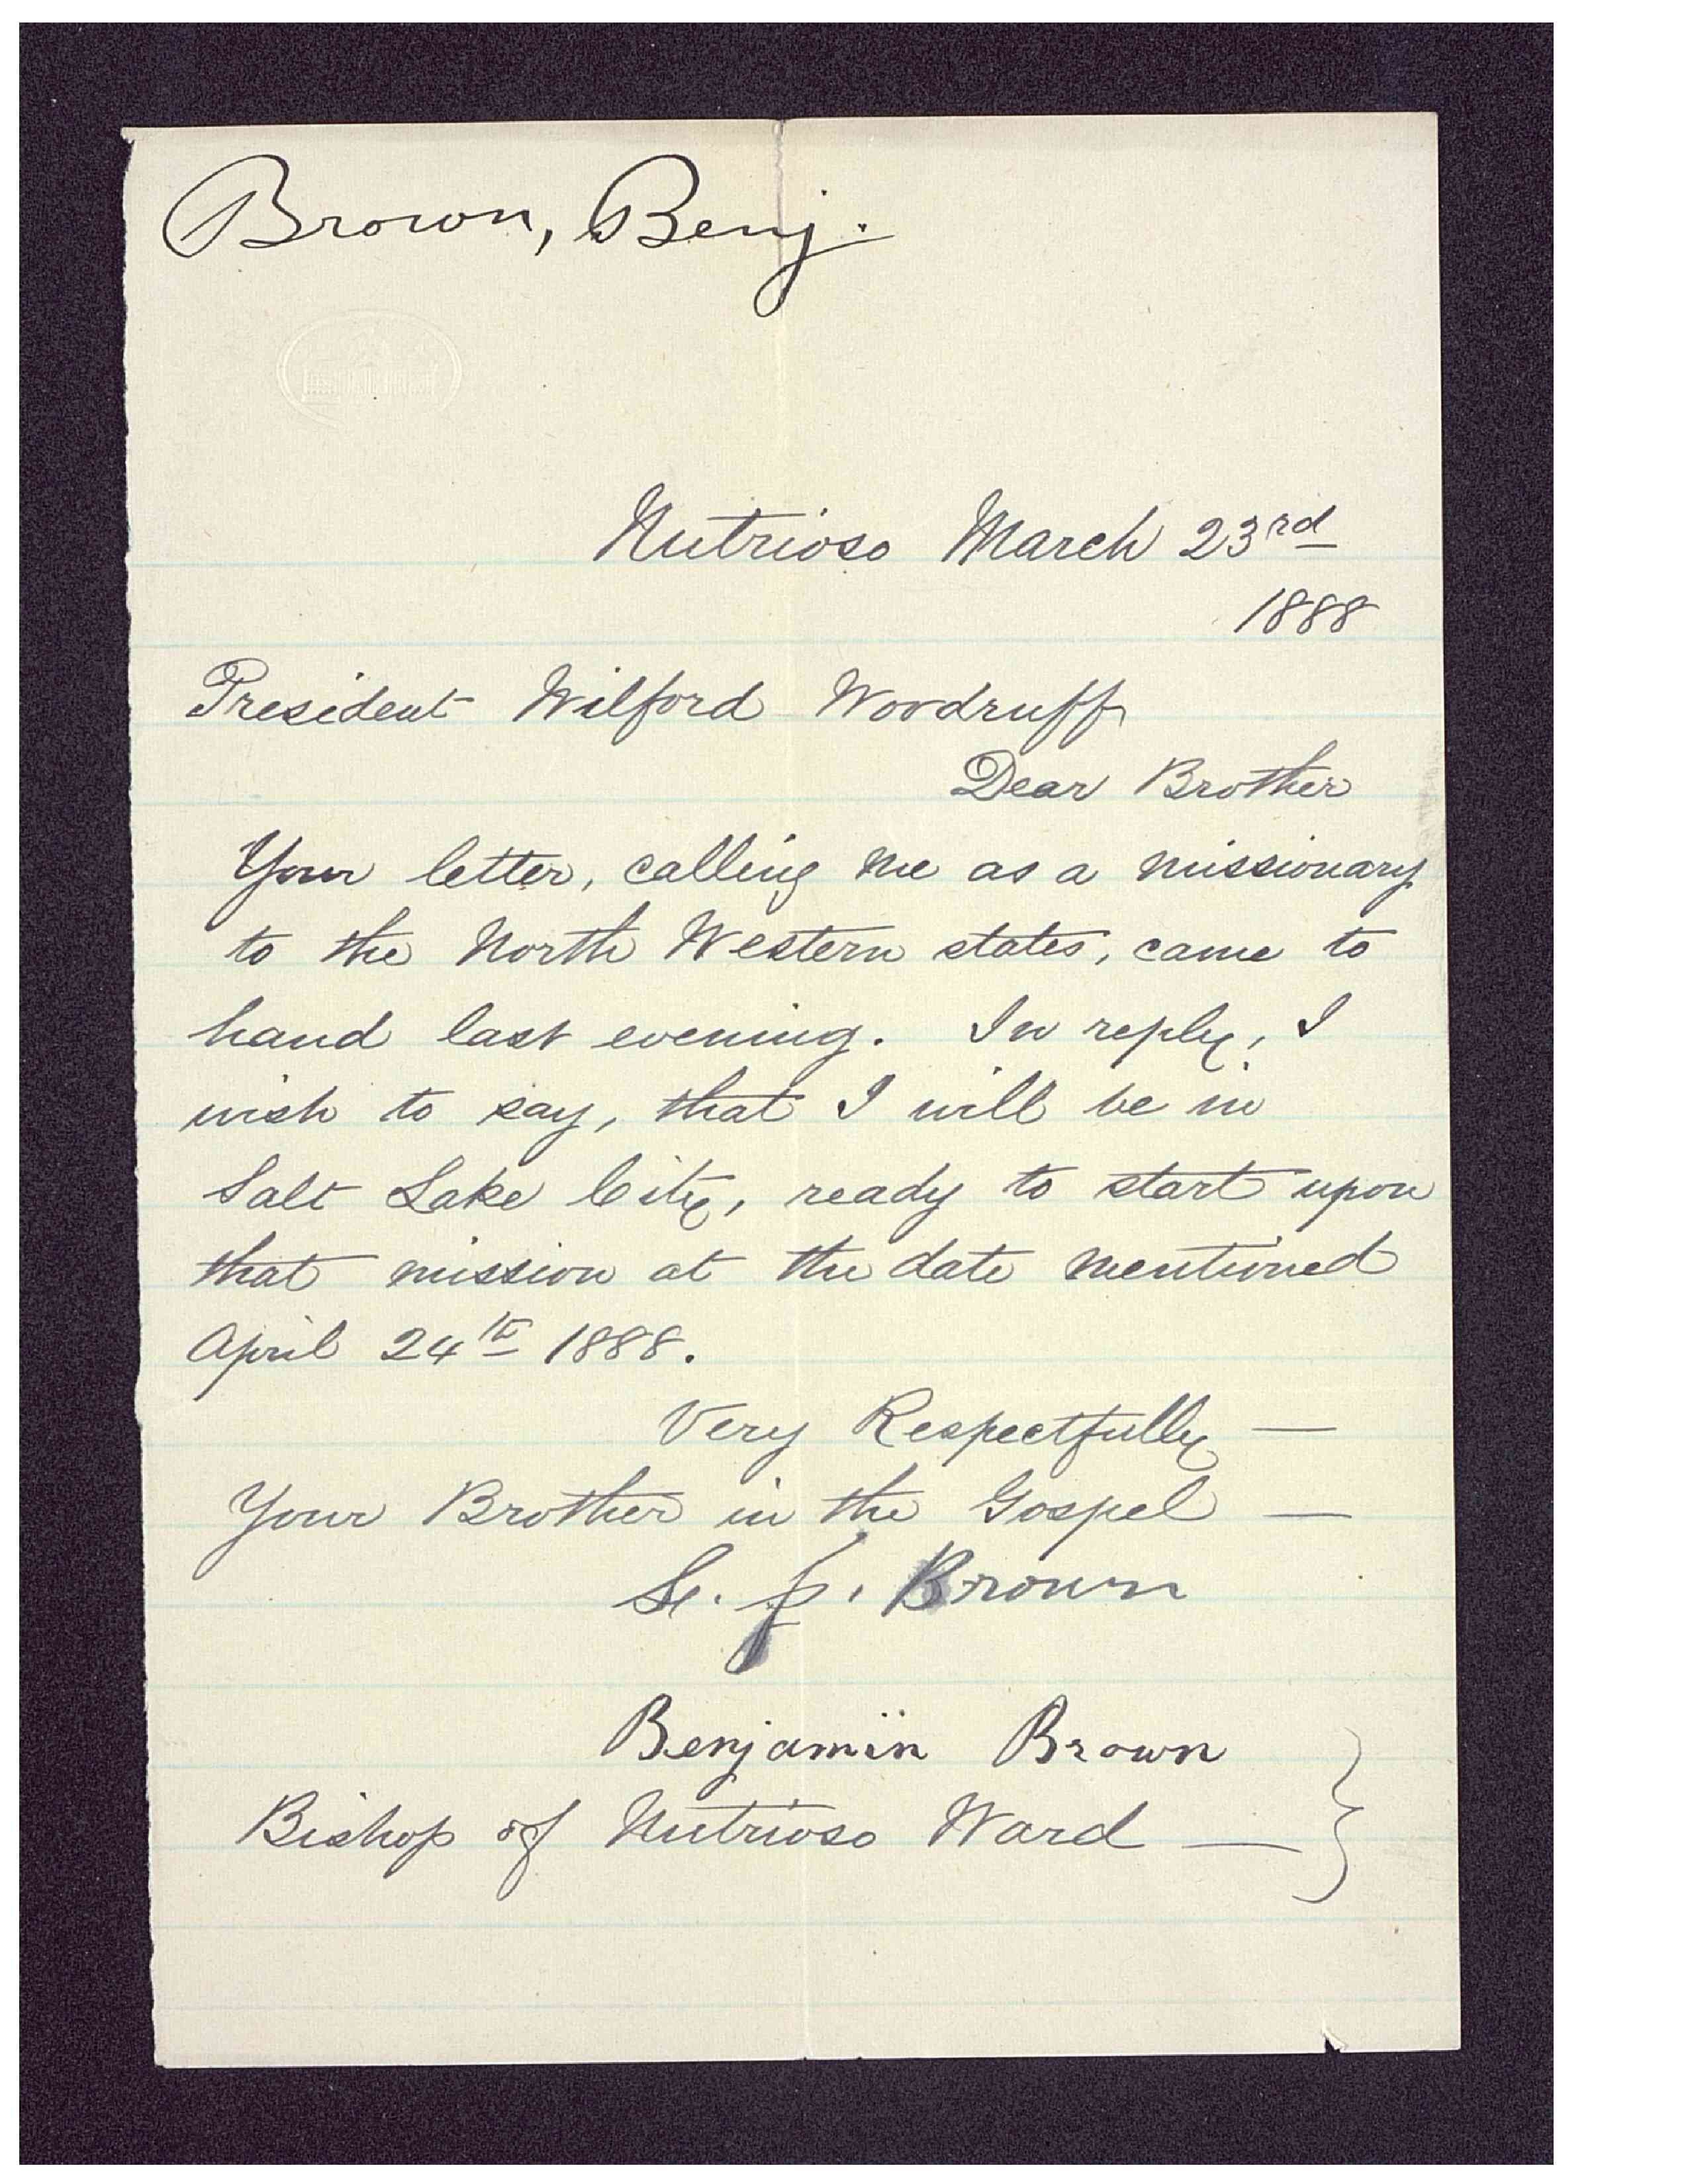 Brown, Benj.
Nutrioso March 23rd
1888
President Wilford Woodruff
Dear Brother
Your letter, calling me as a missionary
to the North Western states, came to
hand last evening. In reply, I
wish to say, that I will be in
Salt Lake City, ready to start upon
that mission at the date mentioned
April 24th 1888.
Very Respectfully —
Your Brother in the Gospel —
Brown
Benjamin Brown
Bishop of Nutrioso Ward —